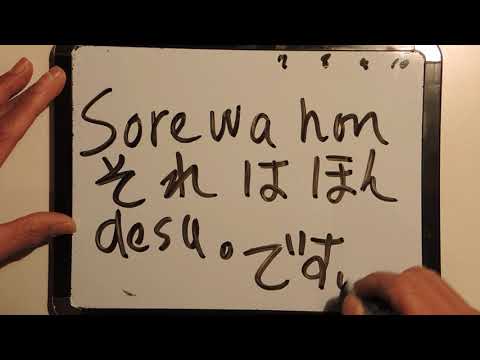 7 8 9 10
Sore wa hon
それ は ほん
desu. です。